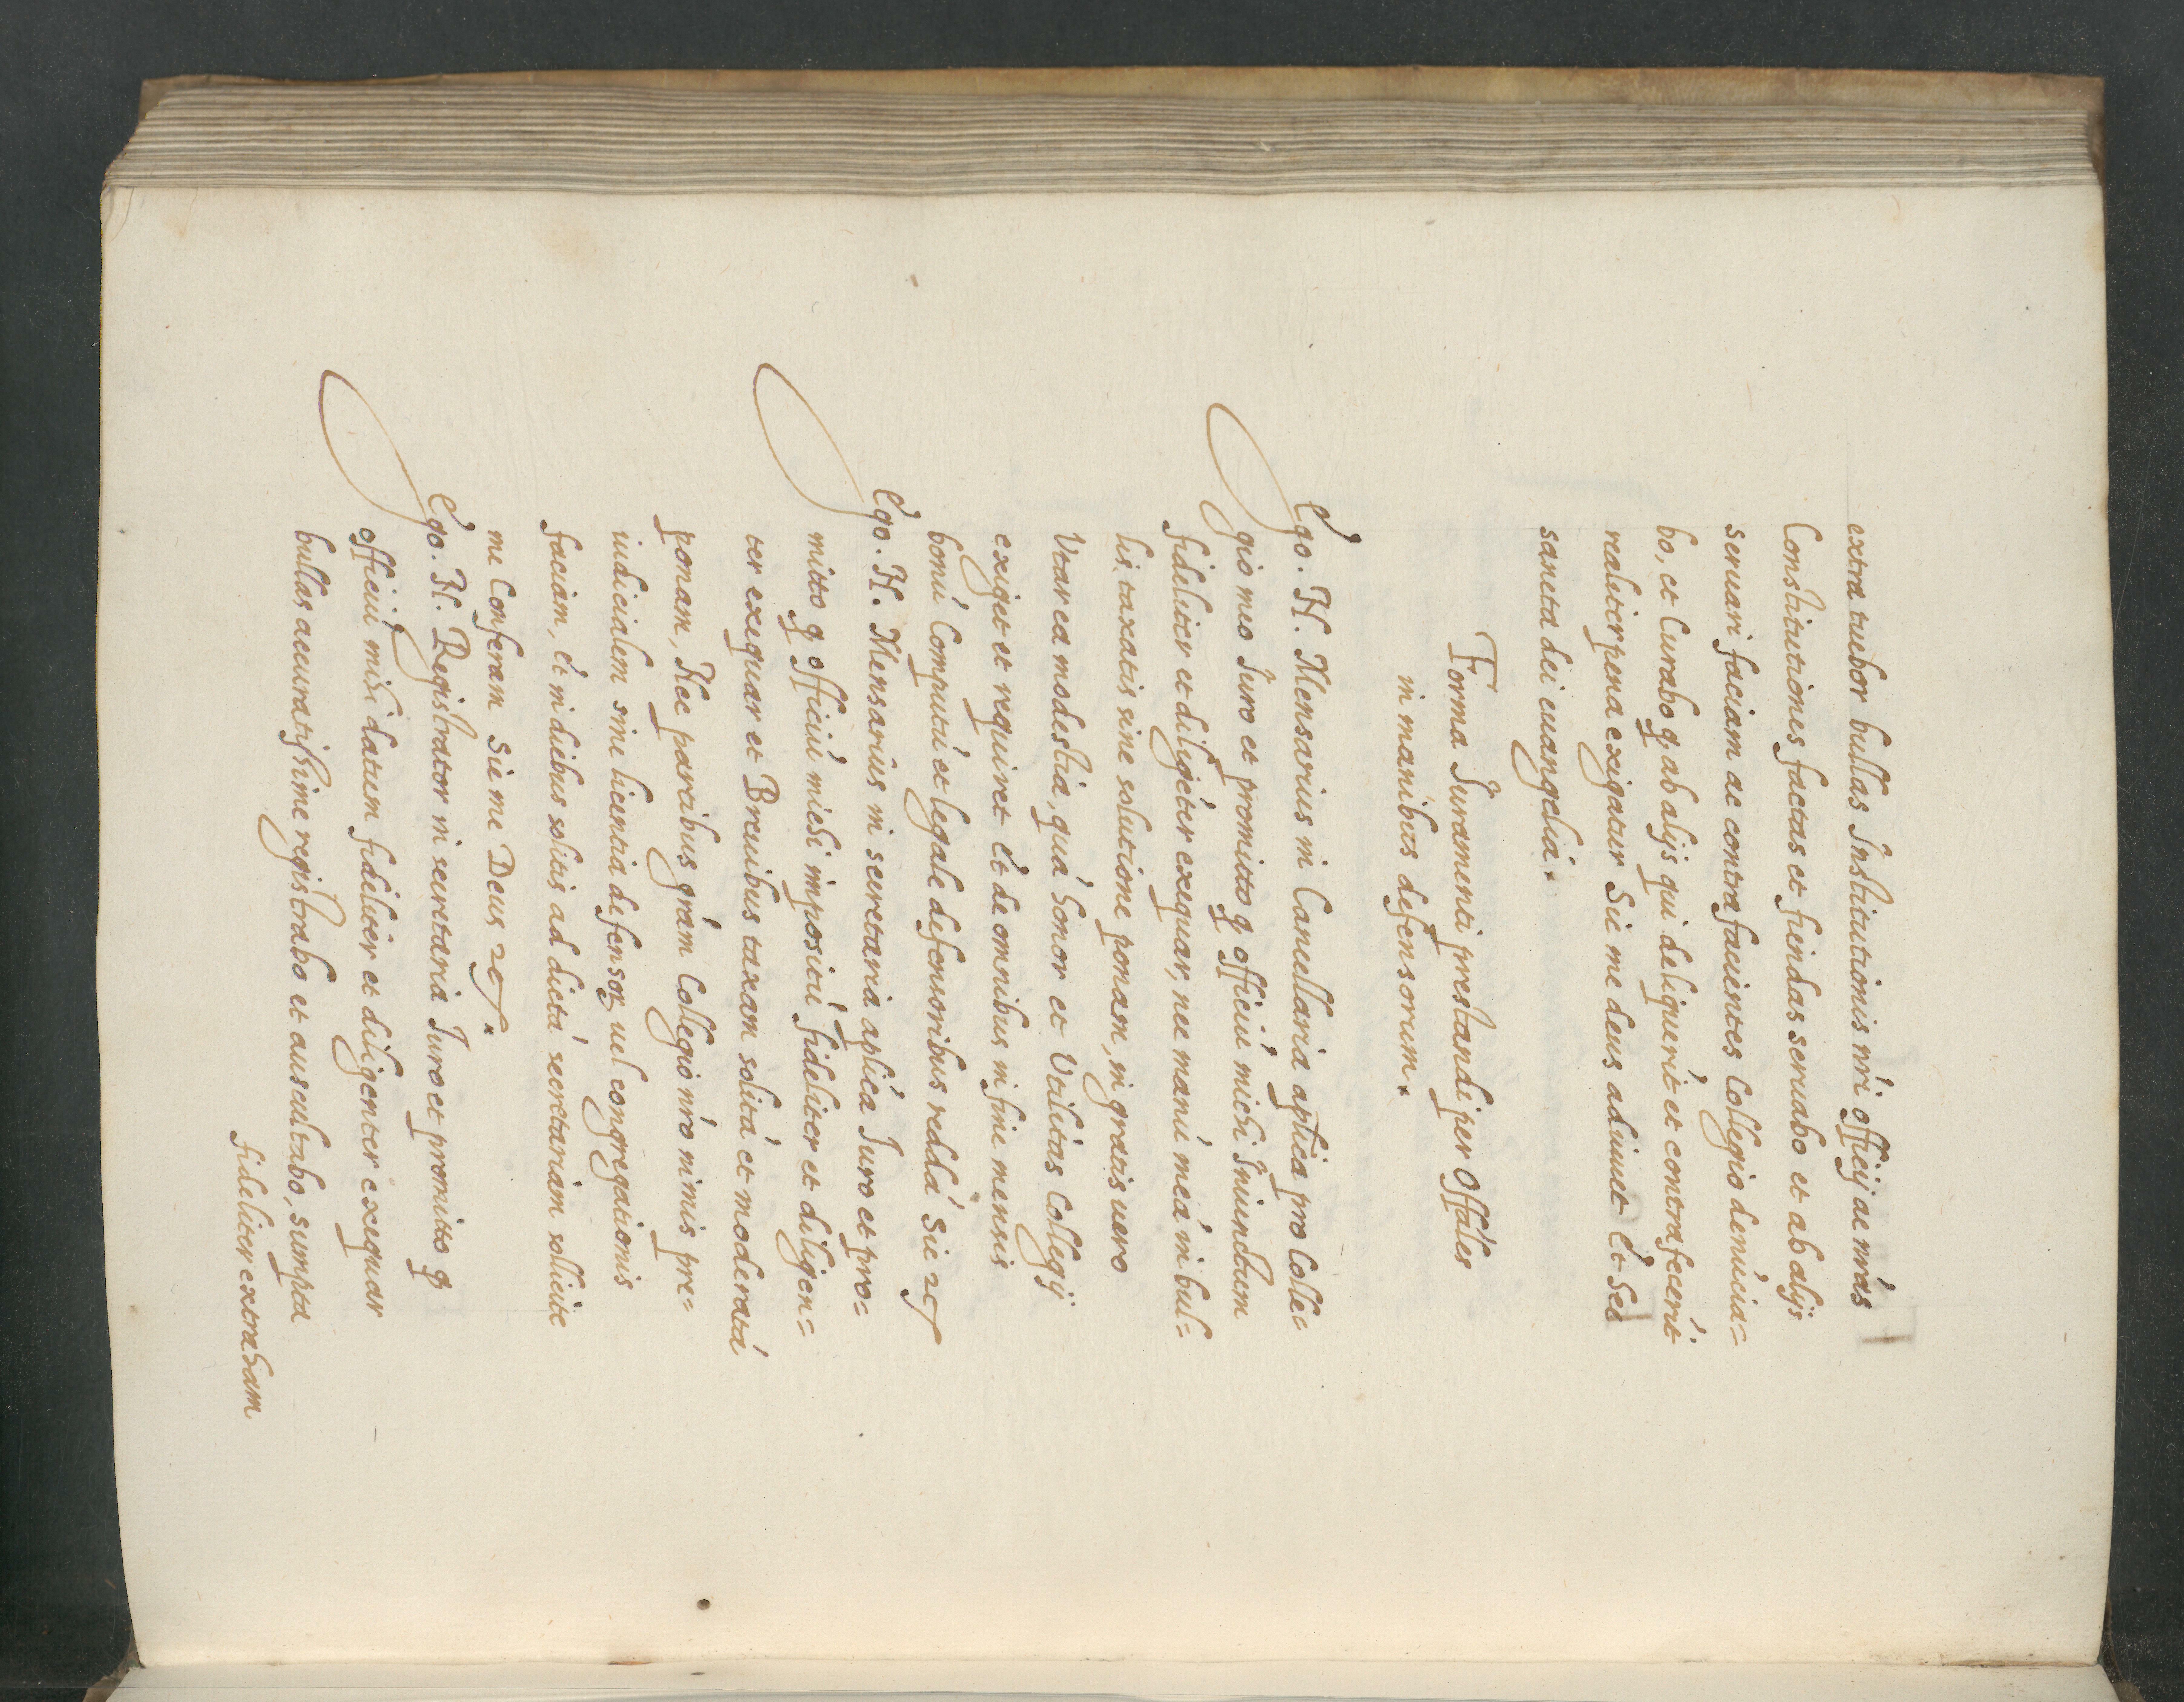 extra tuebor bullas Institutionis nr̃i officij ac nrás
Constitutiones factas et fiendas seruabo et ab alijs
seruari faciam ac contra facientes Collegio denúcia=
bo, et Curabo q̃ ab alijs qui deliquerĩt et contrafecerĩt
realiter pena exigatur Sic me deus adiuuet Et hec
sancta dei euangelia.
Forma Iuramenti prestandi per offáles
in manibus defensorum.
Ego. N. Mensarius in Cancellaria aplića pro Colle=
gio meo Iuro et promitto q̃ officiú michi Iniunctum
fideliter et diligéter exequar, nec manú meá in bul=
lis taxatis sine solutione ponam, in gratis uero
Vtar ea modestia, quá honor et Vtilitas Collegij
exiget et requiret Et de omnibus in fine mensis
bonú Computú et legale defensoribus reddá Sic ⁊c̃
Ego. N. Mensarius in secretaria aplića Iuro et pro=
mitto q̃ officiú michi impositú fideliter et diligen=
ter exequar et Breuibus taxam solitá et moderatá
ponam, Nec partibus grám Collegio nr̃o nimis pre=
iudicialem sine licentia defensoꝝ uel congregationis
faciam, et in diebus solitis ad dictá secretariam sollicite
me Conferam Sic me Deus ⁊c̃.
Ego. N. Registrator in secretaria Iuro et promitto q̃
officiú mihi datum fideliter et diligenter exequar
bullas accuratissime registrabo et auscultabo, sumpta
fideliter extraham